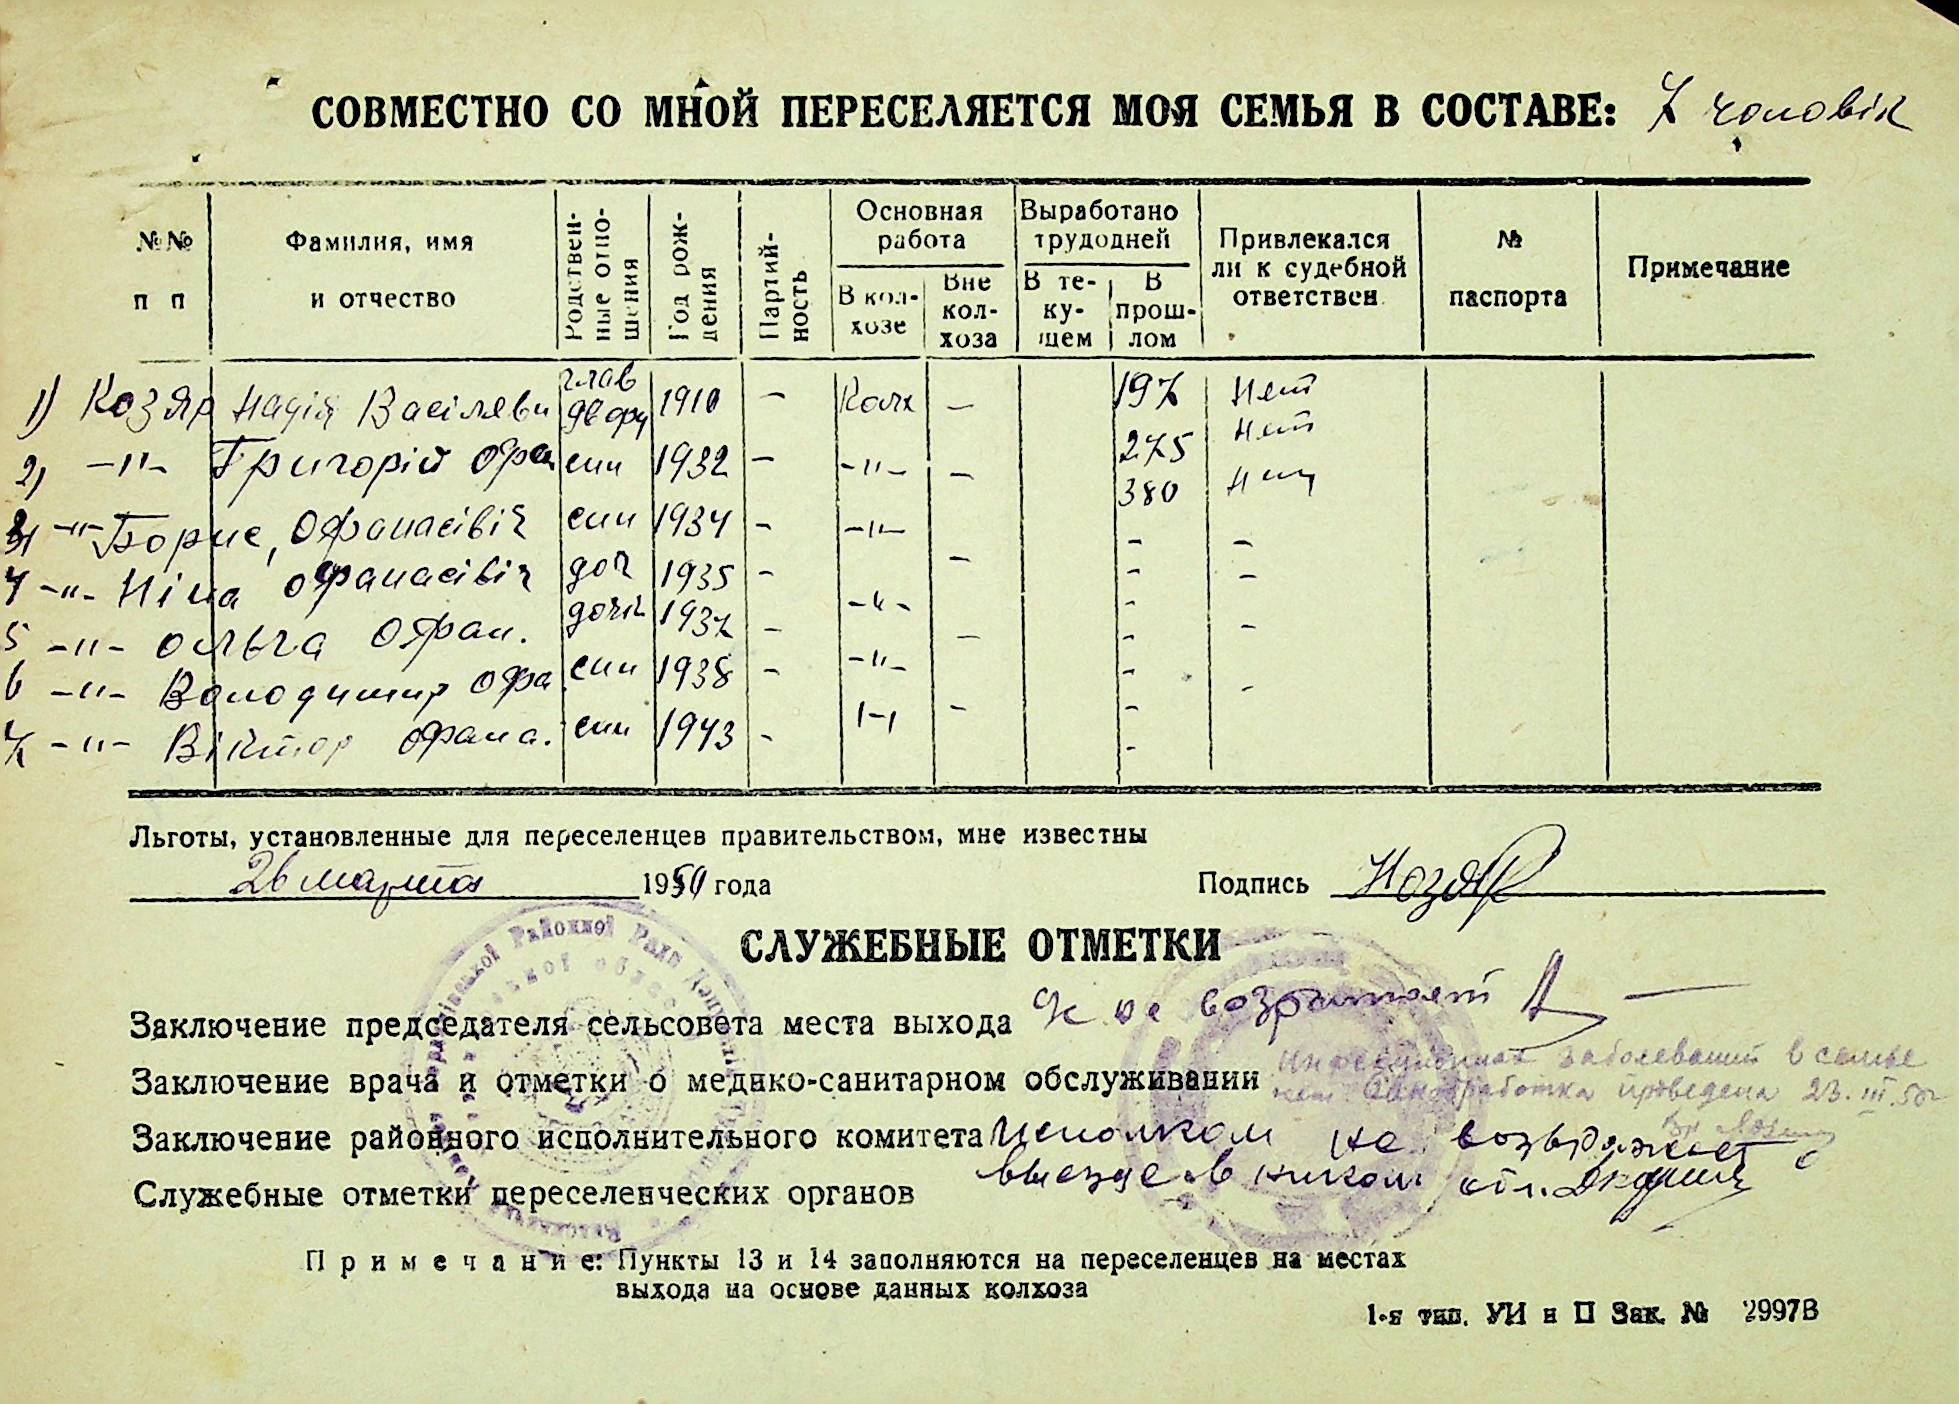 СОВМЕСТНО СО МНОЙ ПЕРЕСЕЛЯЕТСЯ МОЯ СЕМЬЯ В СОСТАВЕ: 7 чоловік
№№ п п
Фамилия, имя и отчество
Родственные отношения
Год рождения
Партийность
Основная работа
В колхозе
Вне колхоза
Выработано трудодней
В текущем
В прошлом
Привлекался ли к судебной ответствен.
№ паспорта
Примечание
1) Козяр Надія Васілявн глав двору 1910 – Колх – 197 Нет
2) –"– Григорій Офан син 1932 – –"– – 275 Нет
3) –"– Борис, Офанасівіч син 1934 – –"– 380 Нет
4 –"– Ніна Офанасівіч доч 1935 – – – –
5 –"– Ольга Офан. дочк 1937 – –"– – – –
6 –"– Володимир Офа син 1938 – –"– – –
7 –"– Віктор Офана. син 1943 – – – –
Льготы, установленные для переселенцев правительством, мне известны
26 марта 1950 года Подпись Козяр
СЛУЖЕБНЫЕ ОТМЕТКИ
Заключение председателя сельсовета места выхода не возражает
Заключение врача и отметки о медико-санитарном обслуживании Инфекционных заболеваний в семье
нет Санобработка проведена 23.III.50г
Заключение районного исполнительного комитета Исполком не возражает
Служебные отметки переселенческих органов
П р и м е ч а н и е: Пункты 13 и 14 заполняются на переселенцев на местах
выхода на основе данных колхоза
1-я тип. УИ и П Зак. № 2997В